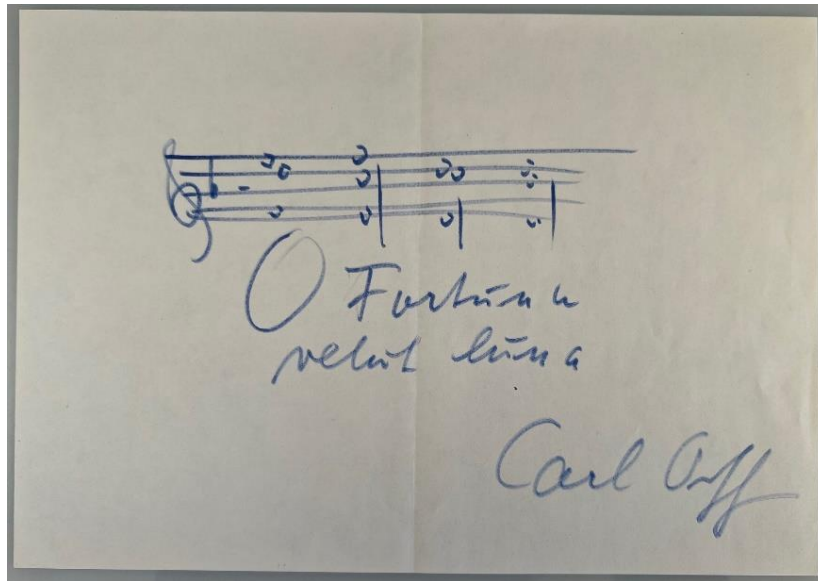 O Fortuna
velut luna
Carl Orff